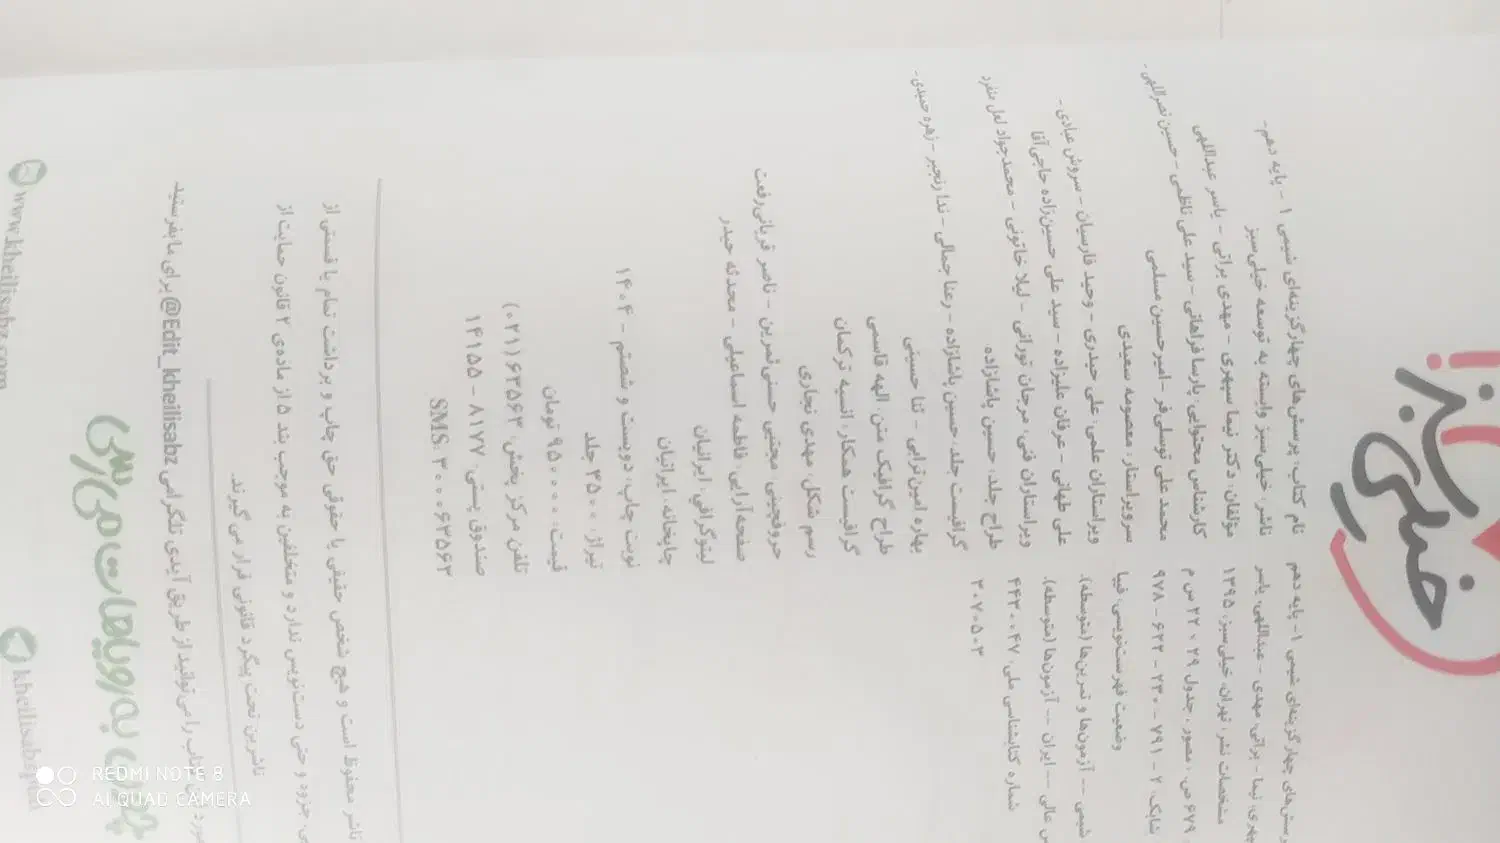 خیلی سبز
نام کتاب: پرسش‌های چهارگزینه‌ای شیمی ۱ - پایه دهم
ناشر: خیلی‌سبز وابسته به توسعه خیلی‌سبز
مؤلفان: دکتر نیما سپهری - مهدی براتی - یاسر عبداللهی
کارشناس محتوایی: پارسا فراهانی - سید علی ناظمی - حسین نصراللهی -
محمد علی توسلی‌فر - امیرحسین مسلمی
سرویراستار: معصومه سعیدی
ویراستاران علمی: علی حیدری - وحید فارسیان - سروش عبادی -
علی طهانی - عرفان علیزاده - سید علی حسین‌زاده حاجی‌آقا
ویراستاران فنی: مرجان تورانی - لیلا خاتونی - محمدجواد لعل منفرد
طراح جلد: حسین پاشازاده
گرافیست جلد: حسین پاشازاده - رعنا جمالی - ندا رنجبر - زهره حمیدی -
بهاره امین‌ترابی - ثنا حسینی
طراح گرافیک متن: الهه قاسمی
گرافیست همکار: انسیه ترکمان
رسم شکل: مهدی نجاری
حروفچینی: مجتبی حسنی‌ثمرین - ناصر قربانی‌رفعت
صفحه‌آرایی: فاطمه اسماعیلی - محدثه حیدر
لیتوگرافی: ایرانیان
چاپخانه: ایرانیان
نوبت چاپ: دویست و شصتم - ۱۴۰۴
تیراژ: ۳۵۰۰ جلد
قیمت: ۹۵۰۰۰۰ تومان
تلفن مرکز پخش: ۶۳۵۶۳ (۰۲۱)
صندوق پستی: ۸۱۷۷ - ۱۴۱۵۵
SMS: ۳۰۰۰۶۳۵۶۳
پرسش‌های چهارگزینه‌ای شیمی ۱ - پایه دهم
نیما - براتی، مهدی - عبداللهی، یاسر
مشخصات نشر: تهران، خیلی‌سبز، ۱۳۹۵
۶۷۹ ص.: مصور، جدول ۲۹ × ۲۲ س م
شابک: ۲ - ۷۹۱ - ۲۳۰ - ۶۲۲ - ۹۷۸
وضعیت فهرست‌نویسی: فیپا
شیمی -- آزمون‌ها و تمرین‌ها (متوسطه).
عالی -- ایران -- آزمون‌ها (متوسطه).
شماره کتابشناسی ملی: ۴۴۳۰۰۴۷
۳۰۷۰۵۰۳
ناشر محفوظ است و هیچ شخص حقیقی یا حقوقی حق چاپ و برداشت تمام یا قسمتی از
جزوه و حتی دست‌نویس ندارد و متخلفین به موجب بند ۵ از ماده‌ی ۲ قانون حمایت از
ناشرین تحت پیگرد قانونی قرار می گیرند.
کتاب را می‌توانید از طریق آیدی تلگرامی @Edit_kheilisabz برای ما بفرستید
چون به رویاهات می‌رسی
www.kheilisabz.com
kheilisabz
REDMI NOTE 8
AI QUAD CAMERA